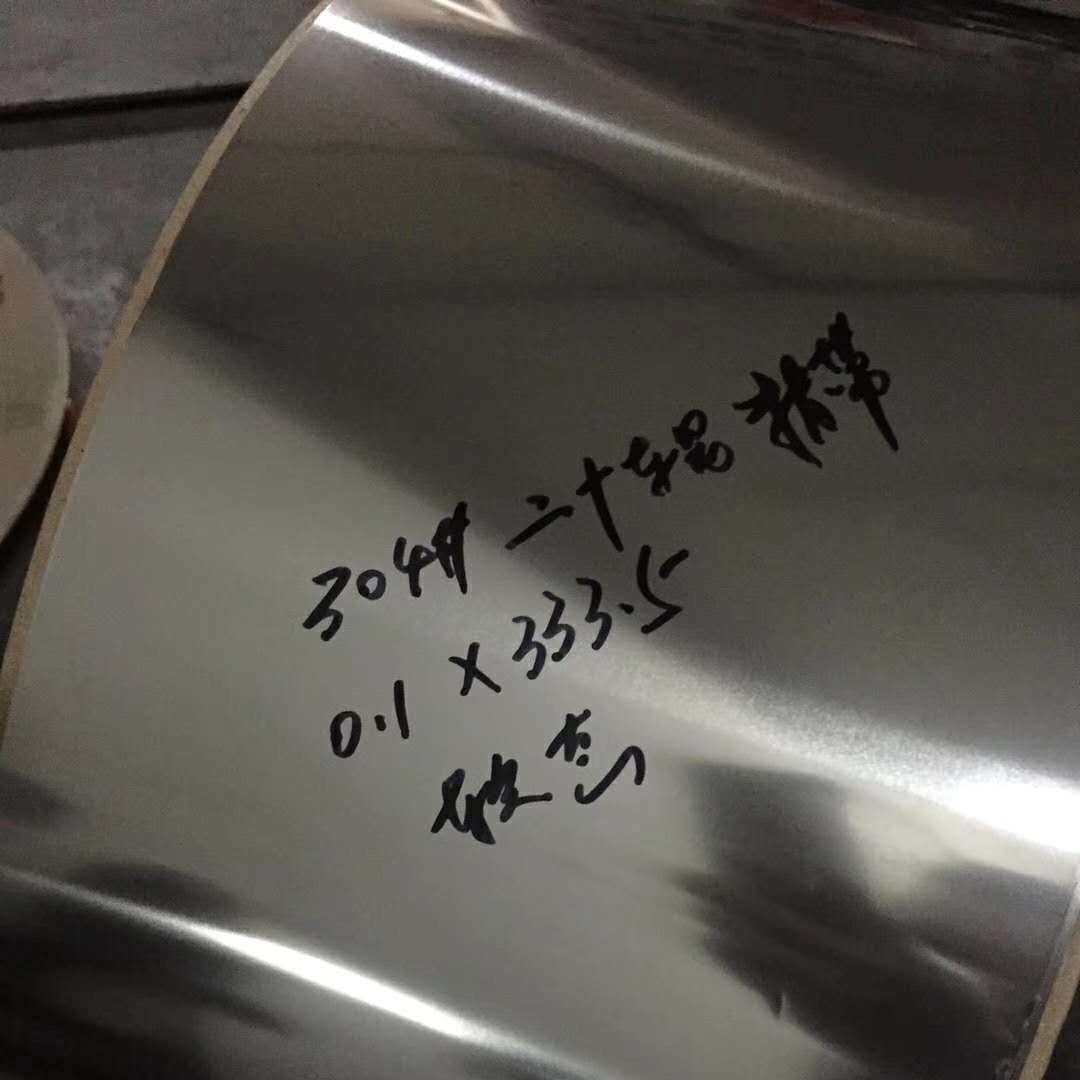 304# 二十辊 精带
0.1 x 333.5
硬态